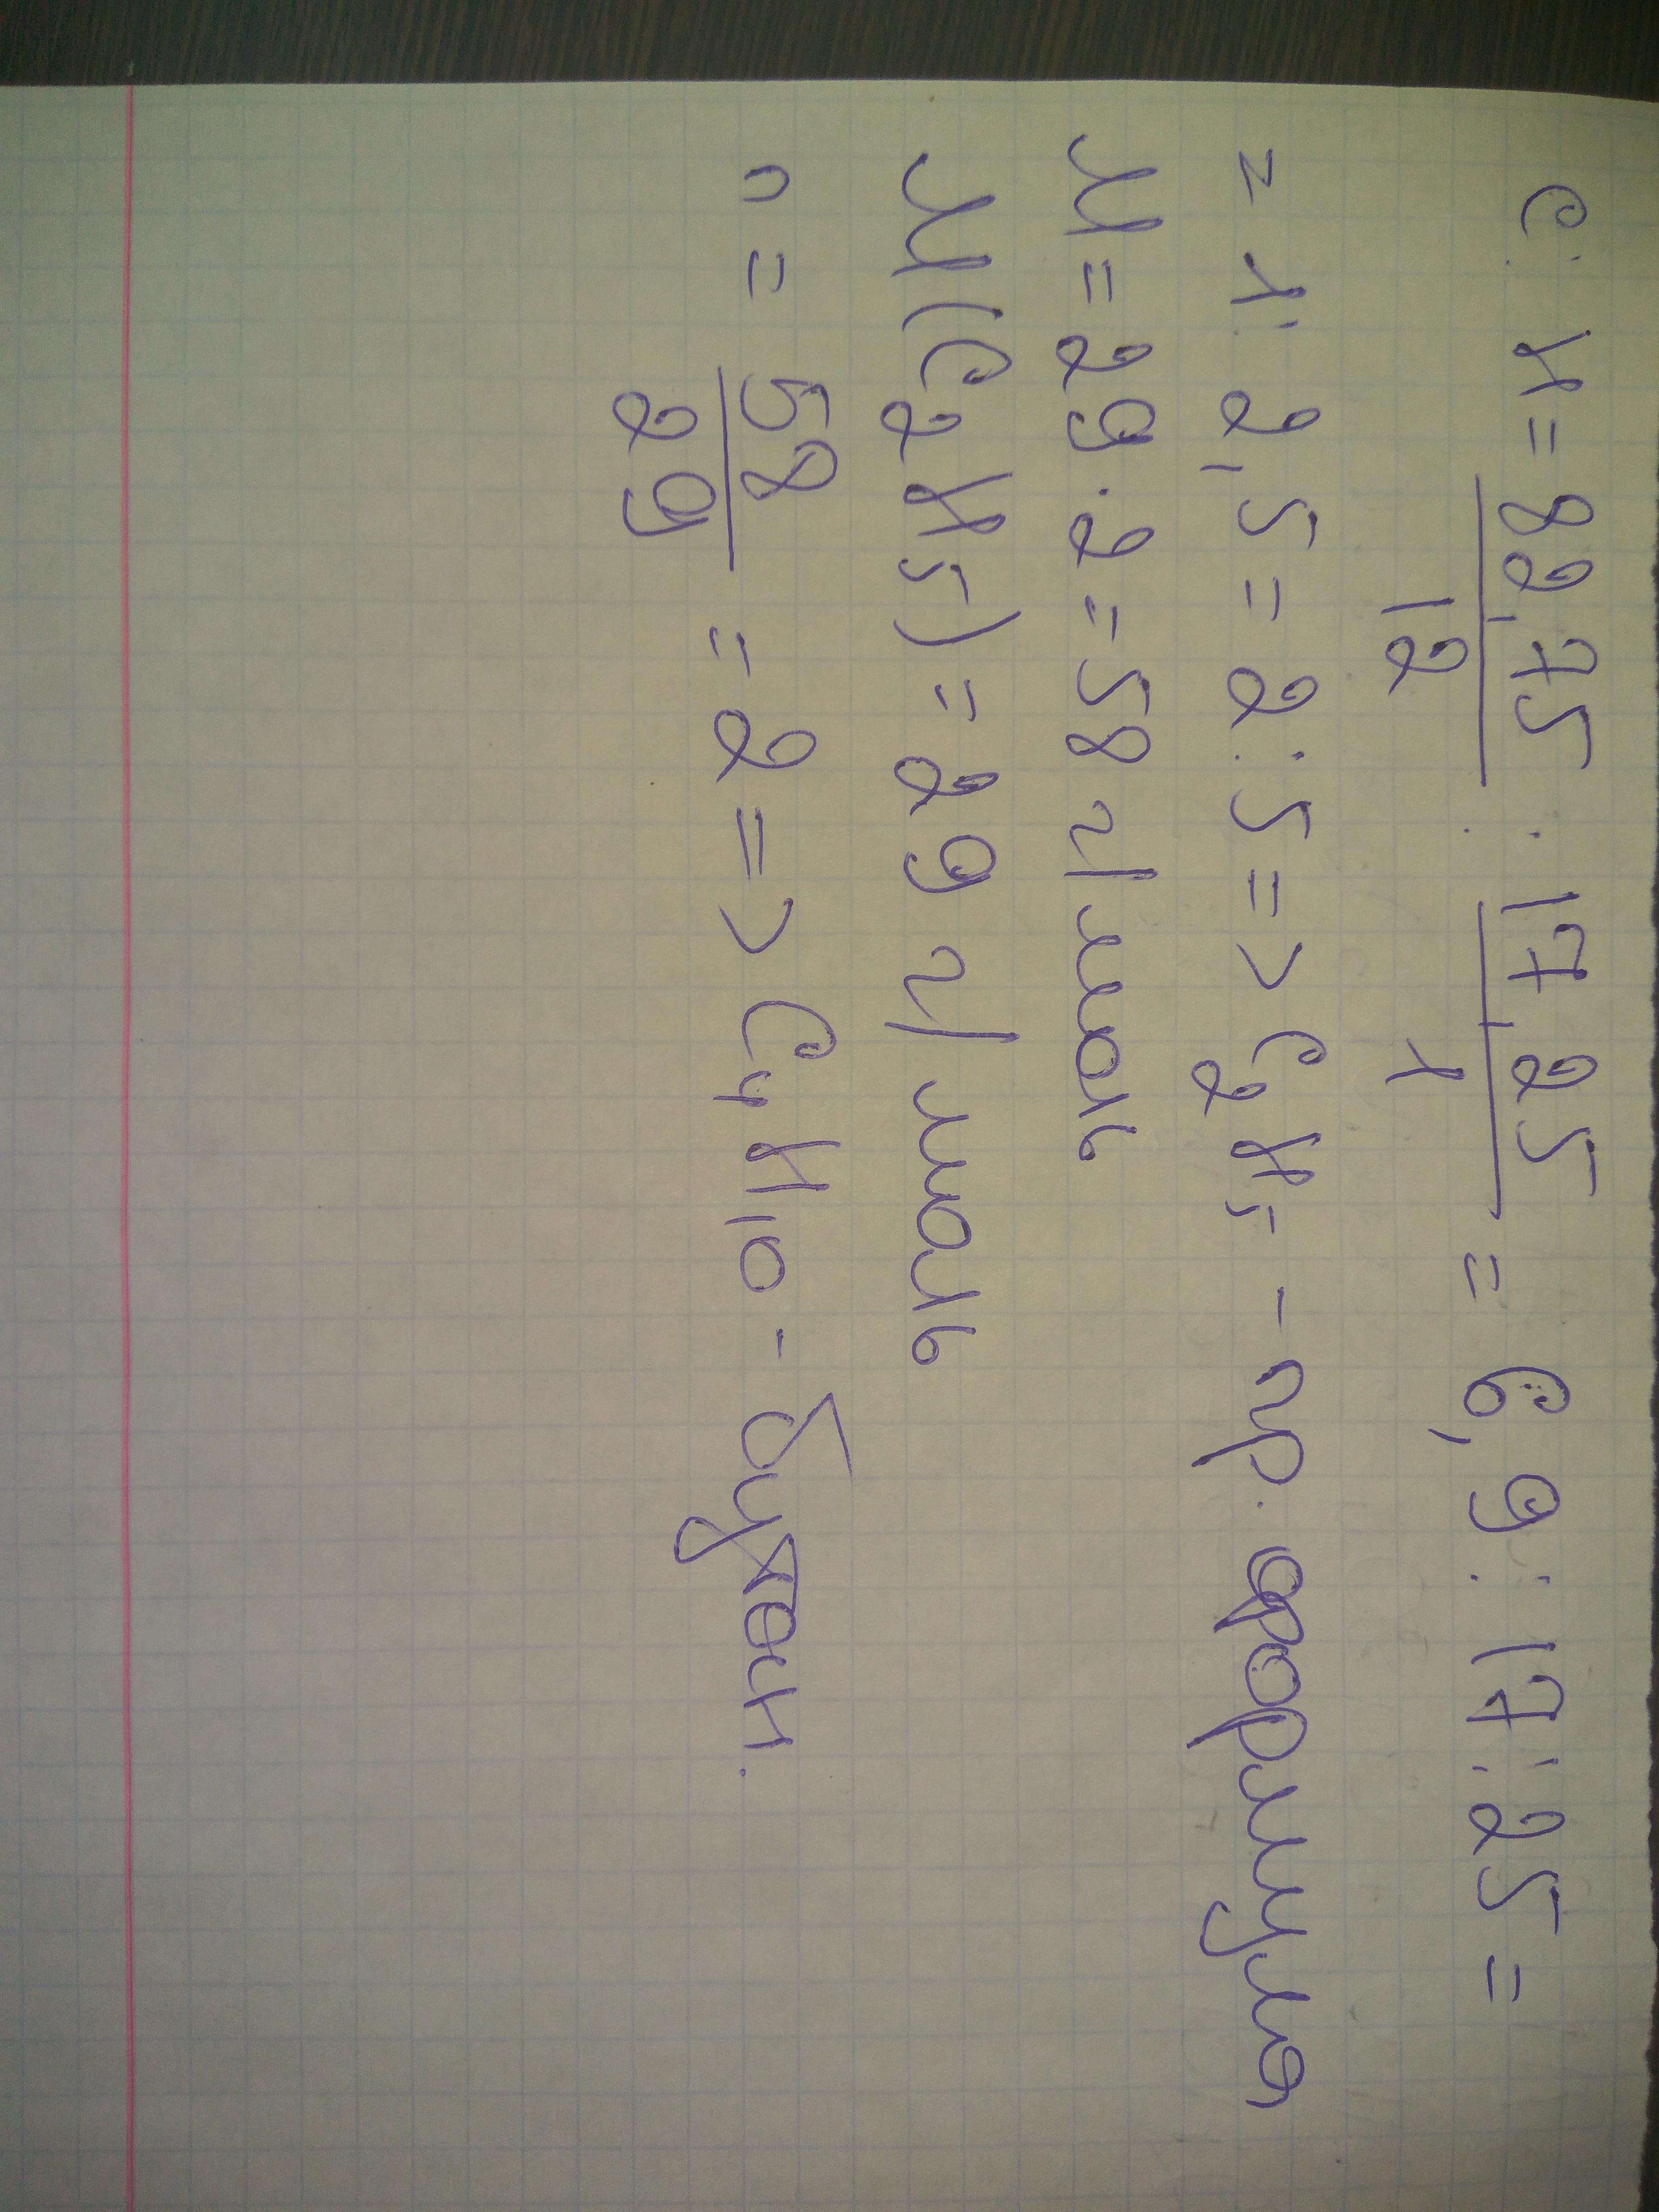 C:H = 82,75/12 : 17,25/1 = 6,9 : 17,25 =
= 1 : 2,5 = 2 : 5 => C2H5 - пр. формула
M = 29·2 = 58 г/моль
M(C2H5) = 29 г/моль
n = 58/29 = 2 => C4H10 - бутан.